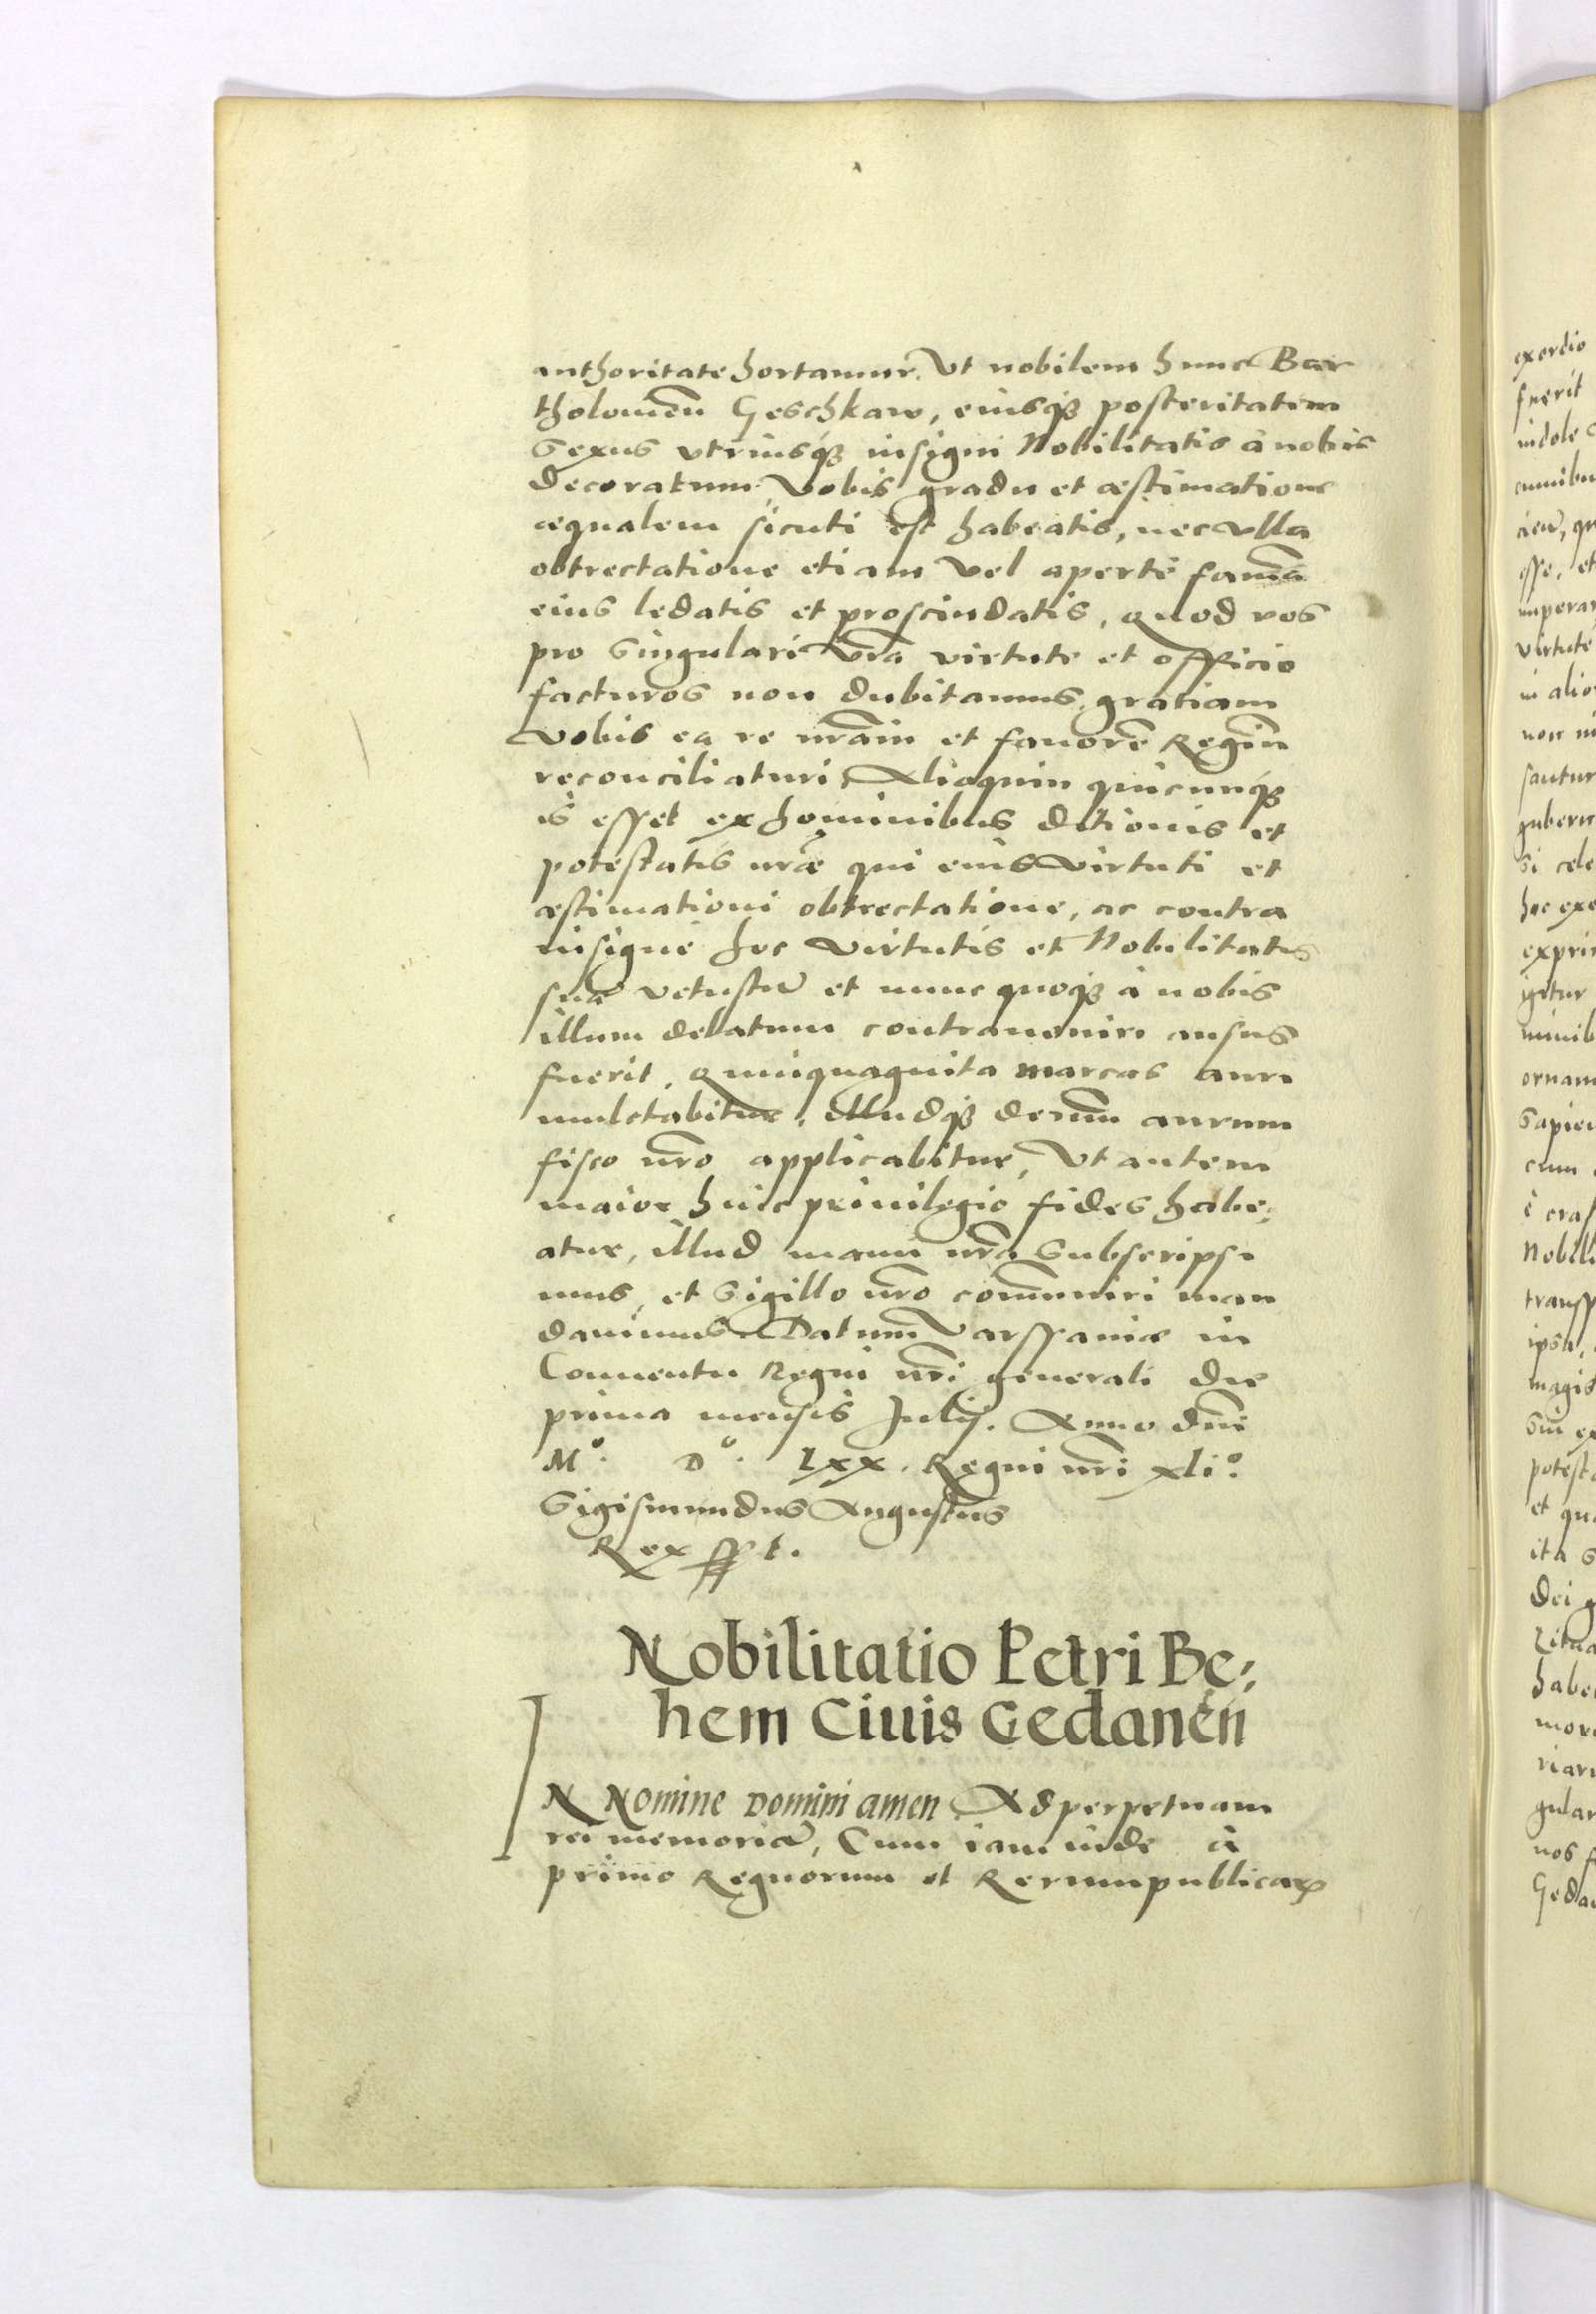 authoritate hortamur. Vt nobilem hunc Bar
tholomeũ Geschkaw, eiusq₃ posteritatem
Sexus vtriusq₃ insigni Nobilitatis à nobis
decoratum. Vobis gradu et æstimatione
æqualem sicuti est habeatis, nec vlla
obtrectatione etiam vel aperte famã
eius ledatis et proscindatis, quod vos
pro singulari vrã virtute et officio
facturos non dubitamus, gratiam
vobis ea re nrãm et fauorẽ Regiũ
reconciliaturi, Alioquin quicunq₃
is esset ex hominibus ditionis et
potestatis nrãe qui eius virtuti et
æstimationi obtrectatione, ac contra
insigne hoc virtutis et Nobilitatis
suæ vetustæ et nunc quoq₃ à nobis
illum delatum contrauenire ausus
fuerit, Quinquaginta marcas auri
mulctabitur, illudq₃ demũ aurum
fisco nrõ applicabitur, Vt autem
maior huic priuilegio fides habe,
atur, illud manu nrã subscripsi
mus, et Sigillo nrõ com̃uniri man
dauimus. Datum Varssauiæ in
Conuentu Regni nrĩ generali die
prima mensis Julij. Anno dnĩ
Mº. Dº. Lxx. Regni nrĩ xliº.
Sigismundus Augustus
Rex sst.
Nobilitatio Petri Be,
hem Ciuis Gedanẽn
IN Nomine Domini amen Ad perpetuam
rei memoriã, Cum iam inde à
primo Regnorum et Rerumpublicaꝝ
exordio
fuerit
indole
esse, et
virtute
in alio
non
gubern
si cele
hoc exe
expri
igitur
ornam
Sapien
cum
Nobili
transf
ipsa,
magis
potest
et qu
ita
dei
habe
more
gular
nos f
Geda